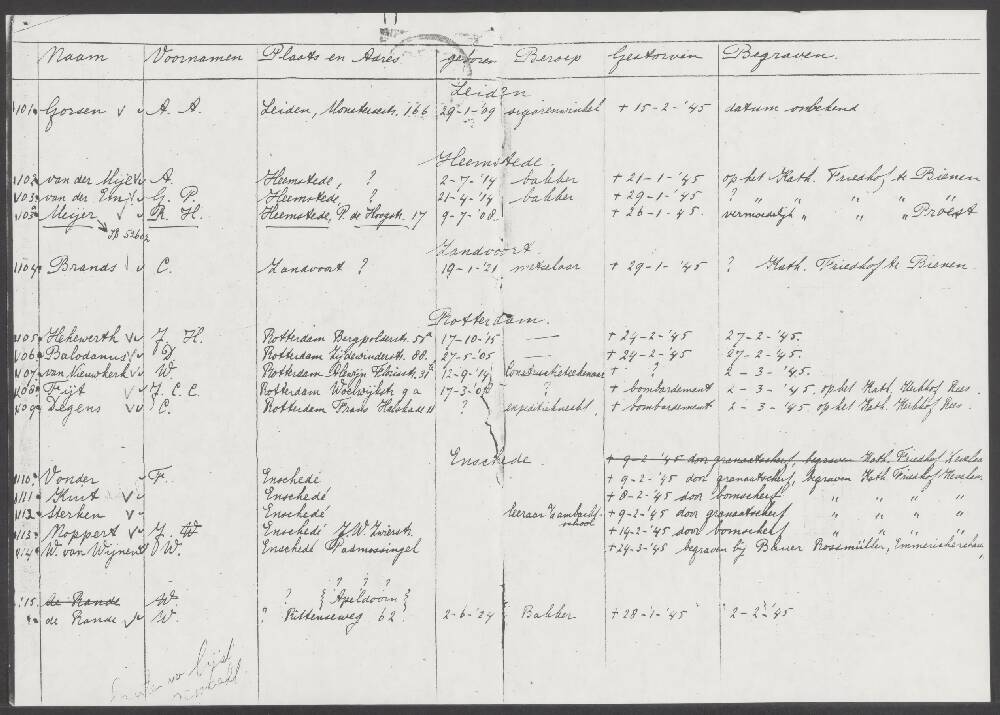 Naam Voornamen Plaats en Adres geboren Beroep Gestorven Begraven.
Leiden
101. Gorsen v v A. A. Leiden, 166 29-1-'09 sigarenwinkel + 15-2-'45 datum onbekend
Heemstede.
102. van der Mije v v A. Heemstede, ? 2-7-'14 bakker + 21-1-'45 op het Kath. Friedhof te Bienen
103. van der v G. P. Heemstede, ? 21-4-'14 bakker + 29-1-'45 ? " " " "
103a Meijer v v R. H. Heemstede, P. de Hooghstr. 17 9-7-'08. + 26-1-45. vermoedelijk " " " " Proest
Zandvoort.
104. Brands v C. Zandvoort ? 19-1-'21 metselaar + 29-1-'45 ? Kath. Friedhof te Bienen.
Rotterdam.
105. Hekewerth v v J. H. Rotterdam Bergpolderstr. 51a 17-10-'15 — + 24-2-'45 27-2-'45.
106. Balodanus v D Rotterdam Zijdewinderstr. 88. 27-5-'05 — + 24-2-'45 27-2-'45.
107. van Nieuwkerk v W Rotterdam 31a 12-9-'14 + ? 2-3-'45.
108. Fijt v v J. C. C. Rotterdam Woelwijkstr. 9a 17-3-07 ? + bombardement 2-3-'45, op het Kath. Kerkhof Rees.
109. Degens v C. Rotterdam Frans Halskade ? expeditieknecht + bombardement 2-3-'45, op het Kath. Kerkhof Rees.
Enschede. + 9-2-'45 door granaatscherf, begraven Kath. Friedhof
110. Vonder v F. Enschedé + 9-2-'45 door granaatscherf, begraven Kath Friedhof
111. v v Enschedé + 8-2-'45 door bomscherf " " "
112. Sterken v v Enschedé leeraar Ambachtschool + 9-2-'45 door granaatscherf " " "
113. Roppert v J. W Enschedé J. W. + 14-2-'45 door bomscherf " " "
114. W. van Wijnen v W. Enschedé + 24-3-'45 begraven bij Bauer Rossmüller,
? ? ?
115. de Rande W. " { Apeldoorn }
" de Rande v v W. " 62. 2-6-'24 Bakker + 28-1-'45 2-2-'45
lijst